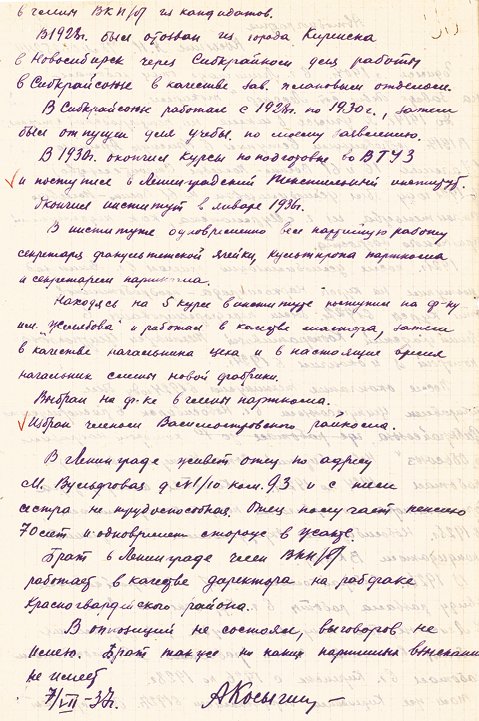 в члены ВКП/б/ из кандидатов.
В 1928г. был отозван из города Киренска
в Новосибирск через Сибкрайком для работы
в Сибкрайсоюзе в качестве зав. плановым отделом.
В Сибкрайсоюзе работал с 1928г. по 1930г., затем
был отпущен для учебы по моему заявлению.
В 1930г. окончил курсы по подготовке во ВТУЗ
и поступил в Ленинградский текстильный институт.
Окончил институт в январе 1936г.
В институте одновременно вел партийную работу
секретаря факультетской ячейки, культпропа парткома
и секретарем парткома.
Находясь на 5 курсе в институте поступил на ф-ку
им. "Желябова" и работал в качестве мастера, затем
в качестве начальника цеха и в настоящие время
начальник смены новой фабрики.
Выбран на ф-ке в члены парткома.
Избран членом Василеостровского райкома.
В Ленинграде живет отец по адресу
М. Вульфовая д N1/10 ком. 93 и с ним
сестра не трудоспособная. Отец получает пенсию
70 лет и одновремен сторож в Жакте.
Брат в Ленинграде член ВКП/б/
работает в качестве директора на рабфаке
Красногвардийского района.
В оппозиций не состоял, выговоров не
имею. Брат также ни каких партийных взыскани
не имеет
7/VII-37. АКосыгин